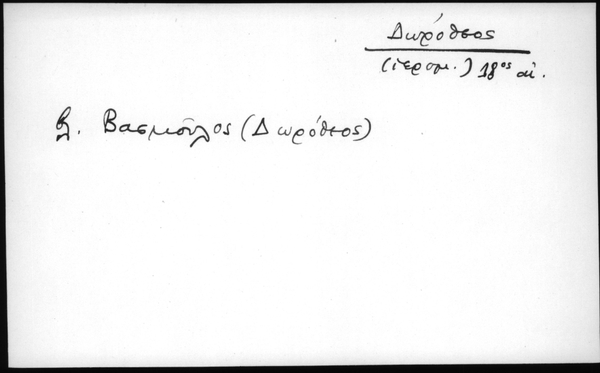 Δωρόθεος
(ἱερομ.) 18ος αἰ.
βλ. Βασμοῦλος (Δωρόθεος)